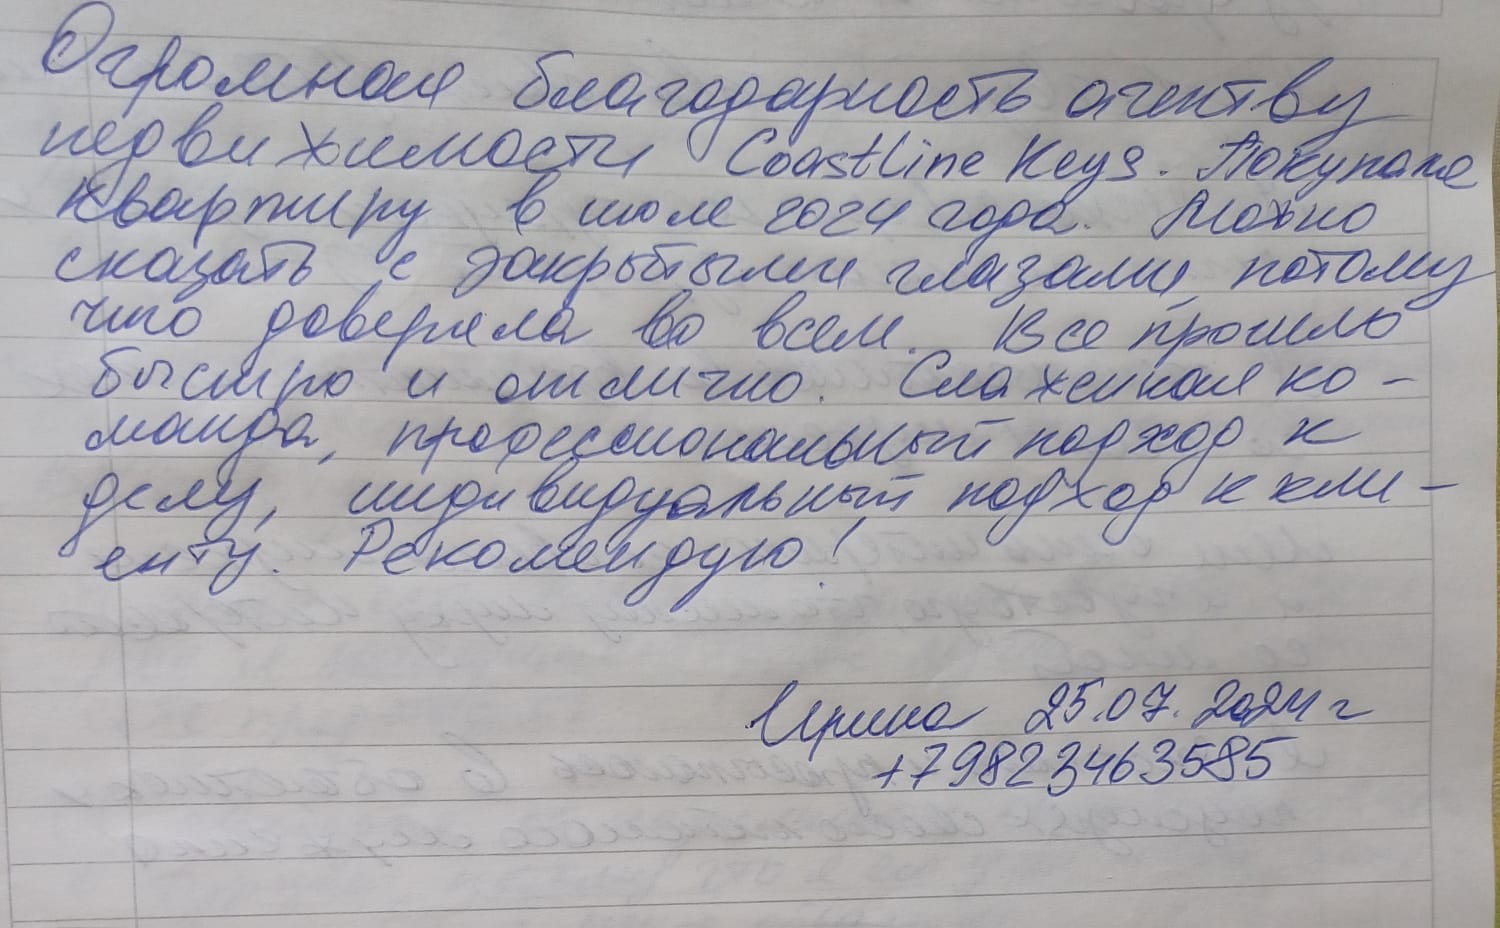 Огромная благодарность агентству
недвижимости Coastline Keys. Покупала
квартиру в июле 2024 года. Можно
сказать с закрытыми глазами, потому
что доверяла во всем. Все прошло
быстро и отлично. Слаженная ко-
манда, профессиональный подход к
делу, индивидуальный подход к кли-
енту. Рекомендую!
Ирина 25.07.2024 г
+79823463585